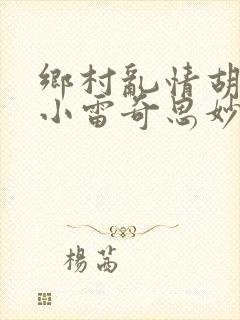 鄉村亂情胡
小雷奇思妙
楊茜